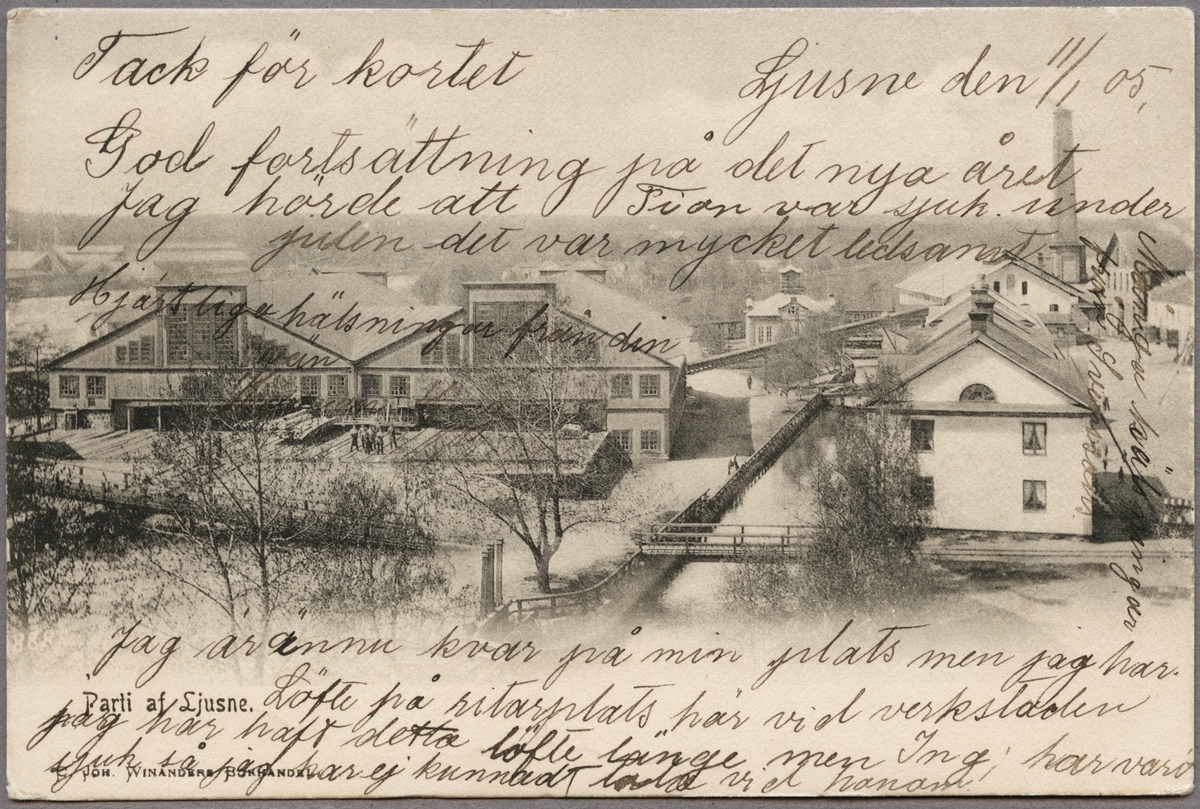 Tack för kortet
Ljusne den 11/1 05.
God fortsättning på det nya året
Jag hörde att Tion var sjuk under
julen det var mycket ledsamt
Hjärtliga hälsningar från din
vän
Många hälsningar
från
Jag är ännu kvar på min plats men jag har
Parti af Ljusne.
Löfte på ritarplats här vid verkstaden
jag har haft detta löfte länge men Ing; har varit
sjuk så jag har ej kunnat tala vid honom.
JOH. WINANDERS BOKHANDEL